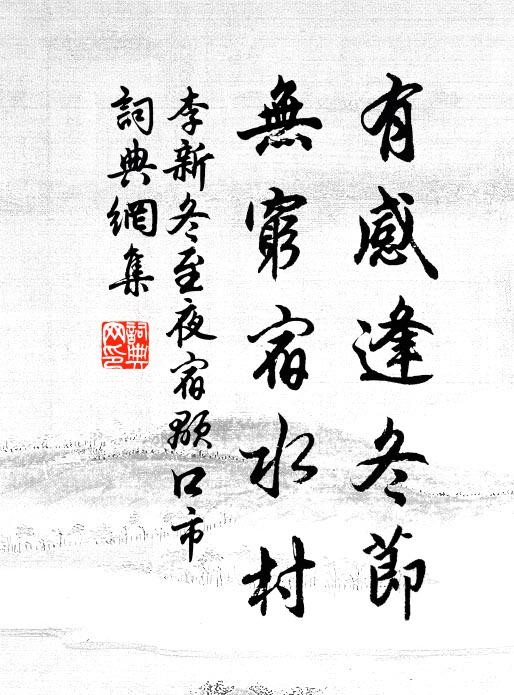 有感逢冬節
無窮宿水村
李新冬至夜宿顥口市
詞典網集
詞典網印